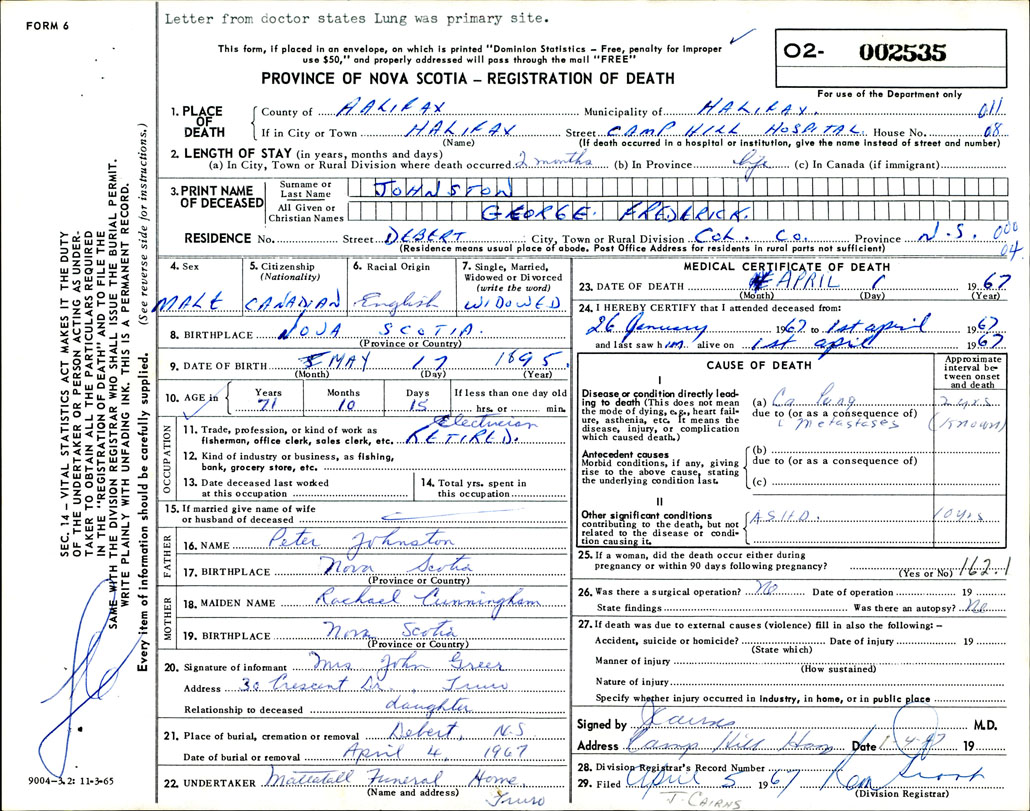 Letter from doctor states Lung was primary site.
FORM 6
This form, if placed in an envelope, on which is printed "Dominion Statistics – Free, penalty for improper
use $50," and properly addressed will pass through the mail "FREE"
PROVINCE OF NOVA SCOTIA – REGISTRATION OF DEATH
02- 002535
For use of the Department only
SEC. 14 – VITAL STATISTICS ACT MAKES IT THE DUTY
OF THE UNDERTAKER OR PERSON ACTING AS UNDER-
TAKER TO OBTAIN ALL THE PARTICULARS REQUIRED
IN THE "REGISTRATION OF DEATH" AND TO FILE THE
SAME WITH THE DIVISION REGISTRAR WHO SHALL ISSUE THE BURIAL PERMIT.
WRITE PLAINLY WITH UNFADING INK. THIS IS A PERMANENT RECORD.
Every item of information should be carefully supplied. (See reverse side for instructions.)
1. PLACE OF DEATH County of HALIFAX Municipality of HALIFAX. 011
If in City or Town HALIFAX Street CAMP HILL HOSPITAL House No. 08
(Name) (If death occurred in a hospital or institution, give the name instead of street and number)
2. LENGTH OF STAY (in years, months and days)
(a) In City, Town or Rural Division where death occurred 2 months (b) In Province life (c) In Canada (if immigrant)
3. PRINT NAME OF DECEASED Surname or Last Name JOHNSTON
All Given or Christian Names GEORGE. FREDERICK.
RESIDENCE No. Street DEBERT City, Town or Rural Division COL. CO. Province N.S. 000
(Residence means usual place of abode. Post Office Address for residents in rural parts not sufficient) 04.
4. Sex MALE
5. Citizenship (Nationality) CANADIAN
6. Racial Origin English
7. Single, Married, Widowed or Divorced (write the word) WIDOWED
8. BIRTHPLACE NOVA SCOTIA.
(Province or Country)
9. DATE OF BIRTH MAY 17 1895.
(Month) (Day) (Year)
10. AGE in Years 71 Months 10 Days 15 If less than one day old hrs. or min.
OCCUPATION
11. Trade, profession, or kind of work as fisherman, office clerk, sales clerk, etc. Electrician RETIRED.
12. Kind of industry or business, as fishing, bank, grocery store, etc.
13. Date deceased last worked at this occupation
14. Total yrs. spent in this occupation
15. If married give name of wife or husband of deceased
FATHER
16. NAME Peter Johnston
17. BIRTHPLACE Nova Scotia
(Province or Country)
MOTHER
18. MAIDEN NAME Rachael Cunningham
19. BIRTHPLACE Nova Scotia
(Province or Country)
20. Signature of informant Mrs John Greer
Address 30 Crescent Dr., Truro
Relationship to deceased daughter
21. Place of burial, cremation or removal Debert, N.S
Date of burial or removal April 4, 1967
22. UNDERTAKER Mattatall Funeral Home,
(Name and address) Truro
9004-3.2: 11-3-65
MEDICAL CERTIFICATE OF DEATH
23. DATE OF DEATH APRIL 1 1967
(Month) (Day) (Year)
24. I HEREBY CERTIFY that I attended deceased from:
26 January 1967 to 1st april 1967
and last saw him alive on 1st april 1967
CAUSE OF DEATH
Approximate interval between onset and death
I
Disease or condition directly leading to death (This does not mean the mode of dying, e.g., heart failure, asthenia, etc. It means the disease, injury, or complication which caused death.)
(a) Ca Lung 2 yrs
due to (or as a consequence of) (known)
metastases
Antecedent causes
Morbid conditions, if any, giving rise to the above cause, stating the underlying condition last.
(b)
due to (or as a consequence of)
(c)
II
Other significant conditions contributing to the death, but not related to the disease or condition causing it.
A.S.H.D. 10 yrs
25. If a woman, did the death occur either during
pregnancy or within 90 days following pregnancy?
(Yes or No) 162.1
26. Was there a surgical operation? No Date of operation 19
State findings Was there an autopsy? No
27. If death was due to external causes (violence) fill in also the following: –
Accident, suicide or homicide? Date of injury 19
(State which)
Manner of injury
(How sustained)
Nature of injury
Specify whether injury occurred in industry, in home, or in public place
Signed by J Cairns M.D.
Address Camp Hill Hosp Date 1-4-67 19
28. Division Registrar's Record Number
29. Filed April 5 1967
J. CAIRNS (Division Registrar)